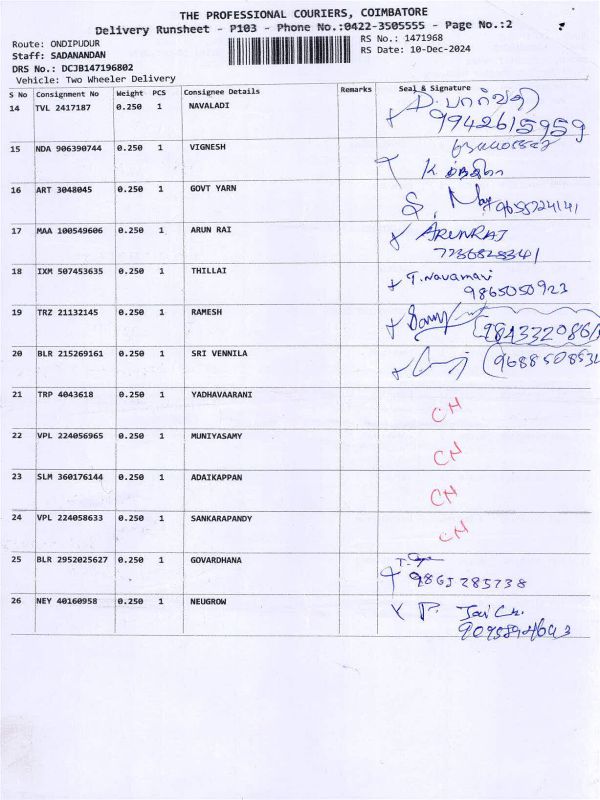 THE PROFESSIONAL COURIERS, COIMBATORE
Delivery Runsheet - P103 - Phone No.:0422-3505555 - Page No.:2
Route: ONDIPUDUR
RS No.: 1471968
Staff: SADANANDAN
RS Date: 10-Dec-2024
DRS No.: DCJB147196802
Vehicle: Two Wheeler Delivery
S No Consignment No Weight PCS Consignee Details Remarks Seal & Signature
14 TVL 2417187 0.250 1 NAVALADI
9942615959
15 NDA 906390744 0.250 1 VIGNESH
16 ART 3048045 0.250 1 GOVT YARN
9655224141
17 MAA 100549606 0.250 1 ARUN RAI ARUNRAJ
7736828341
18 IXM 507453635 0.250 1 THILLAI T. Navamani
9865050923
19 TRZ 21132145 0.250 1 RAMESH
20 BLR 215269161 0.250 1 SRI VENNILA
21 TRP 4043618 0.250 1 YADHAVAARANI CN
22 VPL 224056965 0.250 1 MUNIYASAMY CN
23 SLM 360176144 0.250 1 ADAIKAPPAN CN
24 VPL 224058633 0.250 1 SANKARAPANDY CN
25 BLR 2952025627 0.250 1 GOVARDHANA
9865285738
26 NEY 40160958 0.250 1 NEUGROW